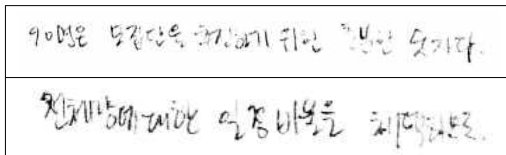 90명은 모집단을 추정하기 위한 충분한 숫자다.
전체양에 대한 일정비율을 채택하므로.